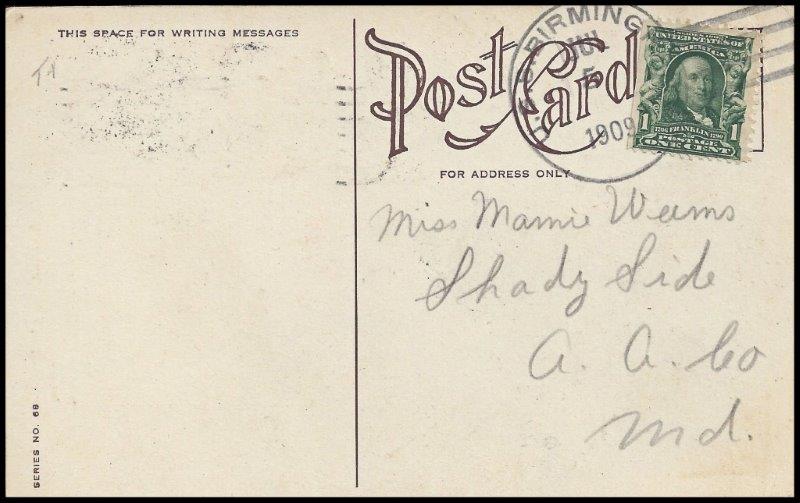 THIS SPACE FOR WRITING MESSAGES
Post Card
FOR ADDRESS ONLY
1909
UNITED STATES OF
AMERICA
1 FRANKLIN 1
POSTAGE
ONE CENT
Miss Mamie Weems
Shady Side
A. A. Co
Md.
SERIES NO. 68